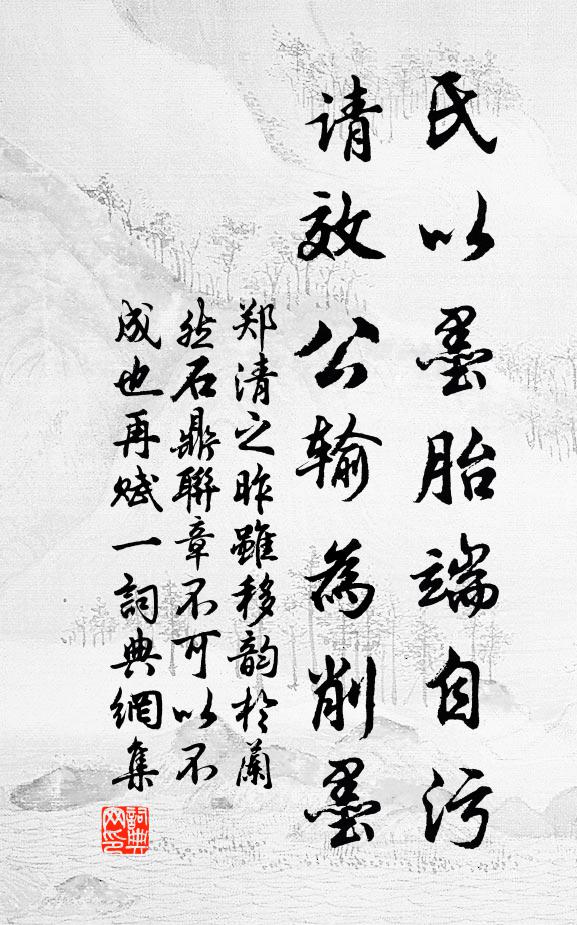 氏以墨胎端自污
请效公输为削墨
郑清之昨雖移韵於蘭
然石鼎聯章不可以不
成也再赋一詞典網集
詞典
网印